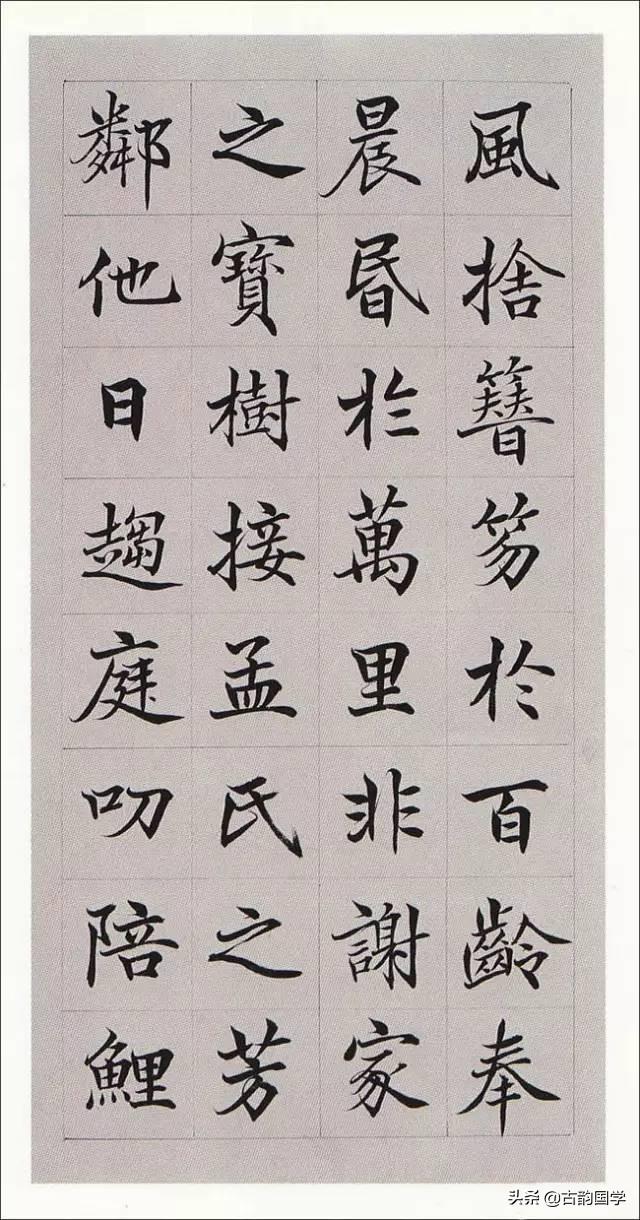 風捨簪笏於百齡奉
晨昏於萬里非謝家
之寶樹接孟氏之芳
鄰他日趨庭叨陪鯉
头条 @古韵国学